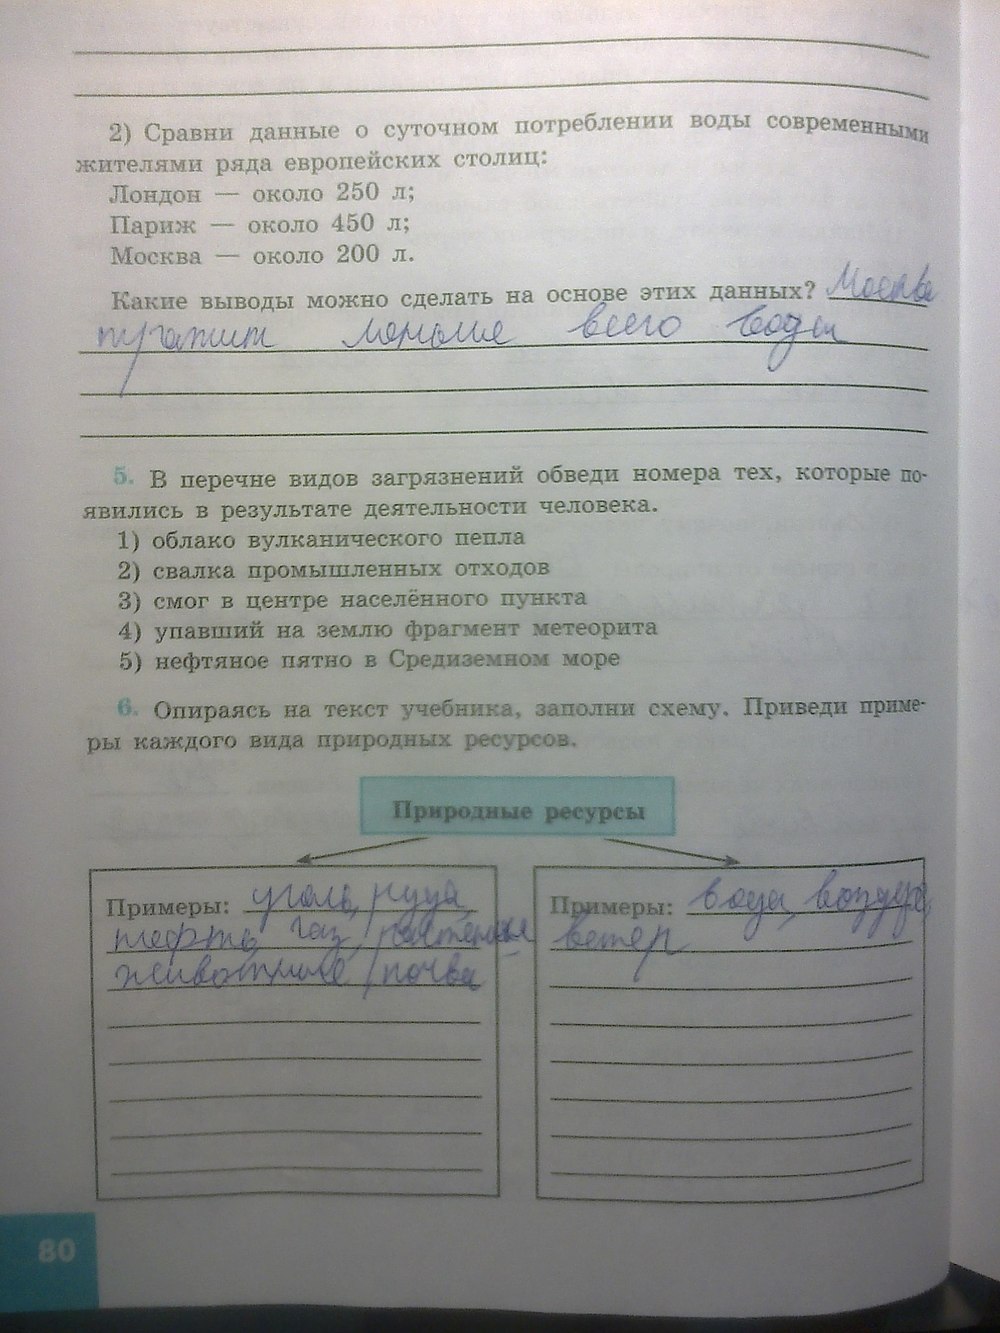 2) Сравни данные о суточном потреблении воды современными
жителями ряда европейских столиц:
Лондон — около 250 л;
Париж — около 450 л;
Москва — около 200 л.
Какие выводы можно сделать на основе этих данных? Москва
меньше всего воды
5. В перечне видов загрязнений обведи номера тех, которые по-
явились в результате деятельности человека.
1) облако вулканического пепла
2) свалка промышленных отходов
3) смог в центре населённого пункта
4) упавший на землю фрагмент метеорита
5) нефтяное пятно в Средиземном море
6. Опираясь на текст учебника, заполни схему. Приведи приме-
ры каждого вида природных ресурсов.
Природные ресурсы
Примеры: уголь, руда,
нефть, газ, растения
животные, почва
Примеры: вода, воздух,
ветер
80